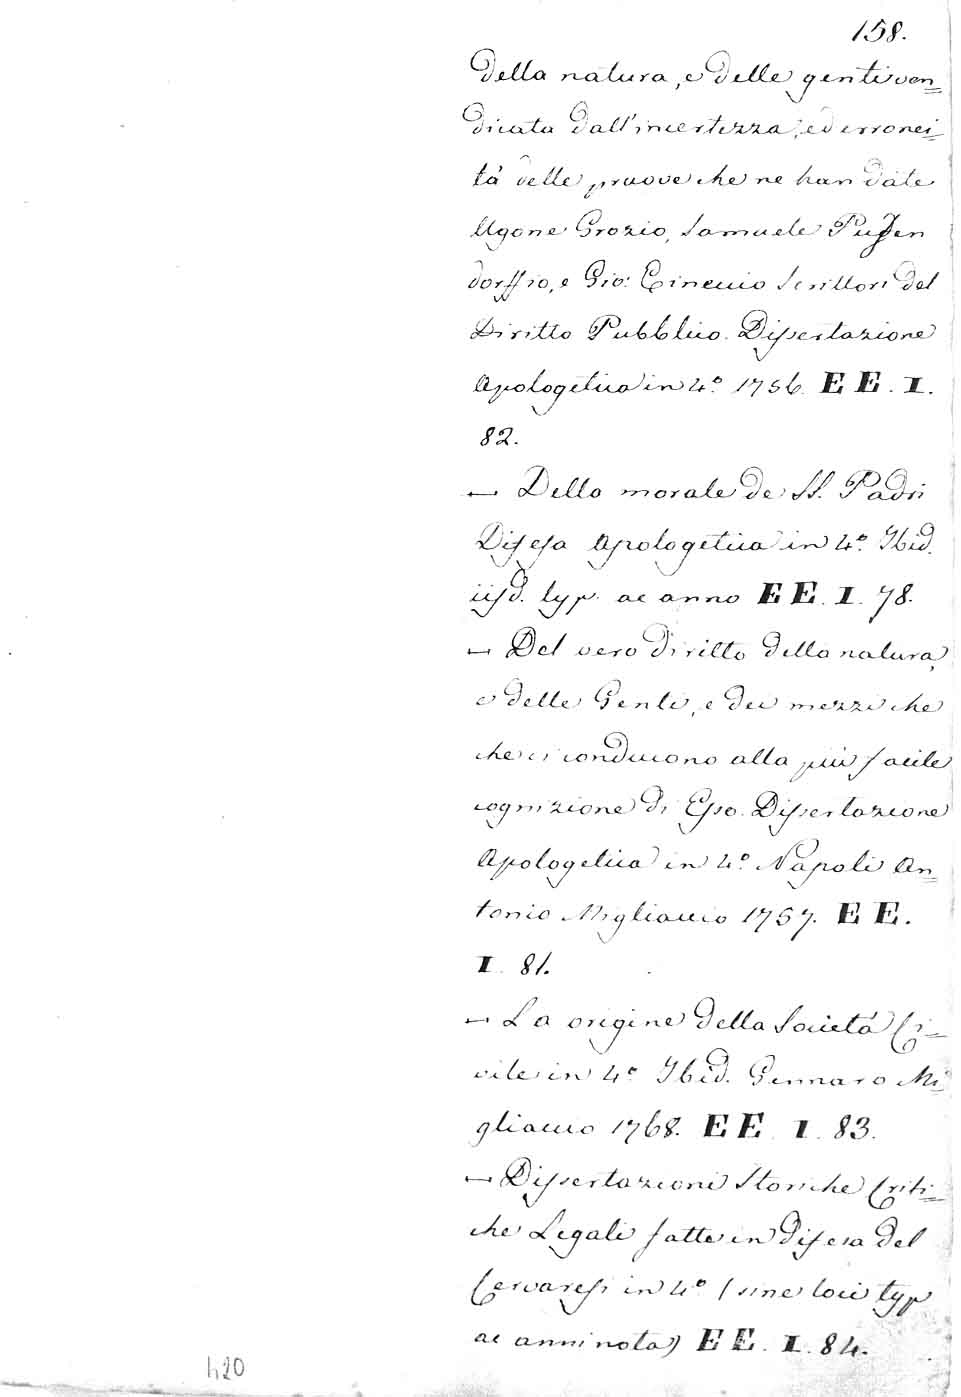 158.
della natura, e delle genti ven=
dicata dall'incertezza, ed erronei=
tà delle pruove che ne han date
Ugone Grozio, Samuele Pufen
dorffio, e Gio: Einecio Scrittori del
Diritto Pubblico. Dissertazione
Apologetica in 4.º 1756. EE. I.
82.
— Della morale de SS. Padri
Difesa Apologetica in 4.º Ibid.
iisd. typ. ac anno EE. I. 78.
— Del vero diritto della natura,
e delle Genti, e dei mezzi che
che ci conducono alla più facile
cognizione di Esso. Dissertazione
Apologetica in 4.º Napoli An=
tonio Migliaccio 1757. EE.
I. 81.
— La origine della Società Ci=
vile in 4.º Ibid. Gennaro Mi=
gliaccio 1768. EE. I. 83.
— Dissertazioni Storiche Criti=
che Legali fatte in difesa del
Cervaresi in 4.º (sine loci typ
ac anni nota) EE. I. 84.
420